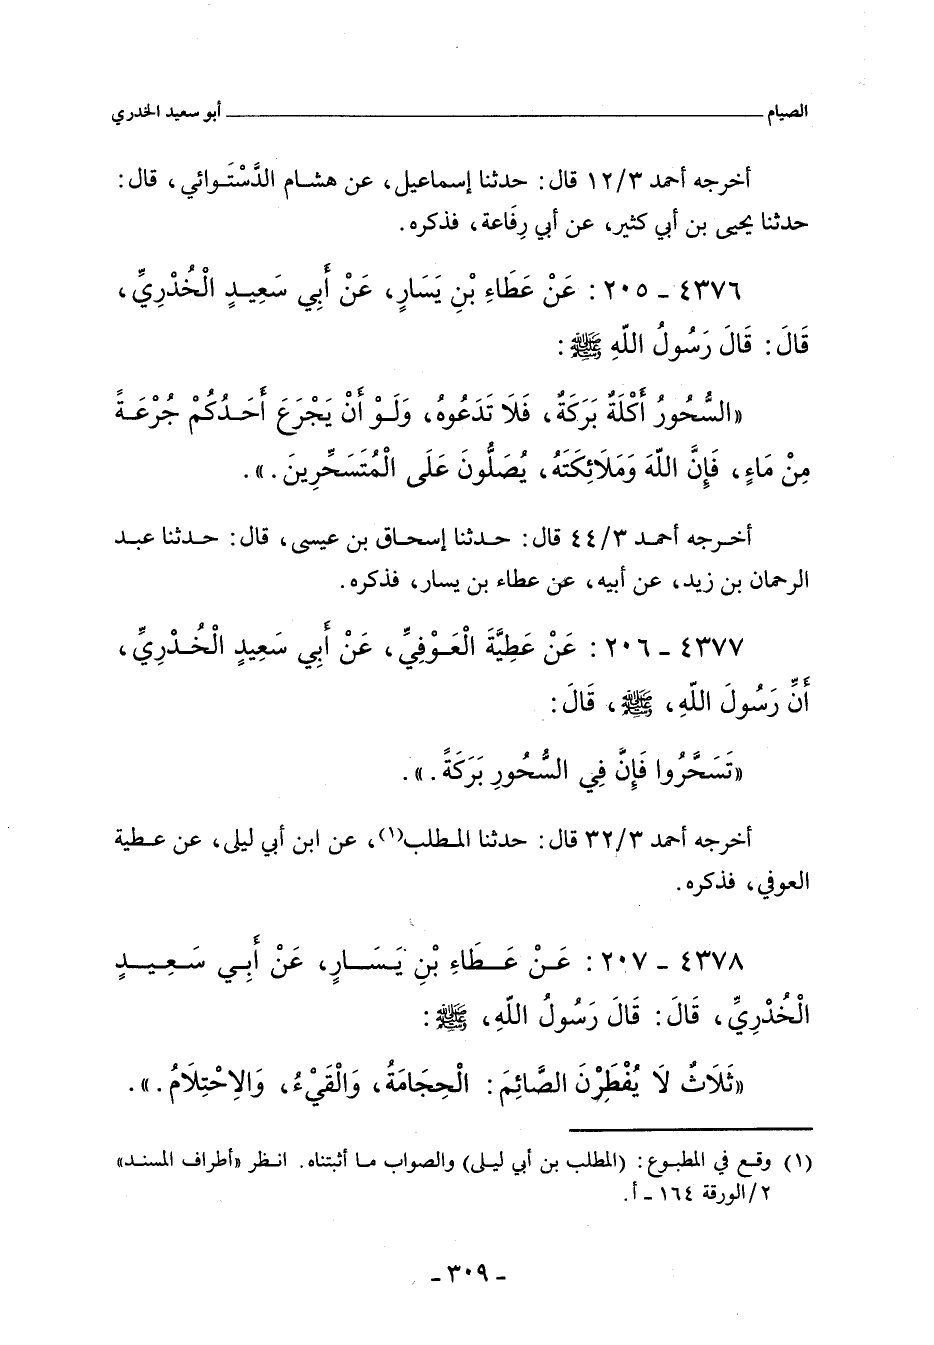 الصيام ــــــــــــــــــــ أبو سعيد الخدري
أخرجه أحمد ١٢/٣ قال: حدثنا إسماعيل، عن هشام الدَّسْتَوائي، قال:
حدثنا يحيى بن أبي كثير، عن أبي رِفَاعة، فذكره.
٤٣٧٦ - ٢٠٥: عَنْ عَطَاءِ بْنِ يَسَارٍ، عَنْ أَبِي سَعِيدٍ الْخُدْرِيِّ،
قَالَ: قَالَ رَسُولُ اللّهِ ﷺ:
«السُّحُورُ أَكْلَةٌ بَرَكَةٌ، فَلَا تَدَعُوهُ، وَلَوْ أَنْ يَجْرَعَ أَحَدُكُمْ جُرْعَةً
مِنْ مَاءٍ، فَإِنَّ اللّهَ وَمَلَائِكَتَهُ، يُصَلُّونَ عَلَى الْمُتَسَحِّرِينَ.».
أخرجه أحمد ٤٤/٣ قال: حدثنا إسحاق بن عيسى، قال: حدثنا عبد
الرحمان بن زيد، عن أبيه، عن عطاء بن يسار، فذكره.
٤٣٧٧ - ٢٠٦: عَنْ عَطِيَّةَ الْعَوْفِيِّ، عَنْ أَبِي سَعِيدٍ الْخُدْرِيِّ،
أَنَّ رَسُولَ اللّهِ، ﷺ، قَالَ:
«تَسَحَّرُوا فَإِنَّ فِي السُّحُورِ بَرَكَةً.».
أخرجه أحمد ٣٢/٣ قال: حدثنا المطلب(١)، عن ابن أبي ليلى، عن عطية
العوفي، فذكره.
٤٣٧٨ - ٢٠٧: عَنْ عَطَاءِ بْنِ يَسَارٍ، عَنْ أَبِي سَعِيدٍ
الْخُدْرِيِّ، قَالَ: قَالَ رَسُولُ اللّهِ، ﷺ:
«ثَلَاثٌ لَا يُفْطِرْنَ الصَّائِمَ: الْحِجَامَةُ، وَالْقَيْءُ، وَالِاحْتِلَامُ.».
(١) وقع في المطبوع: (المطلب بن أبي ليلى) والصواب ما أثبتناه. انظر «أطراف المسند»
٢/الورقة ١٦٤ - أ.
- ٣٠٩ -